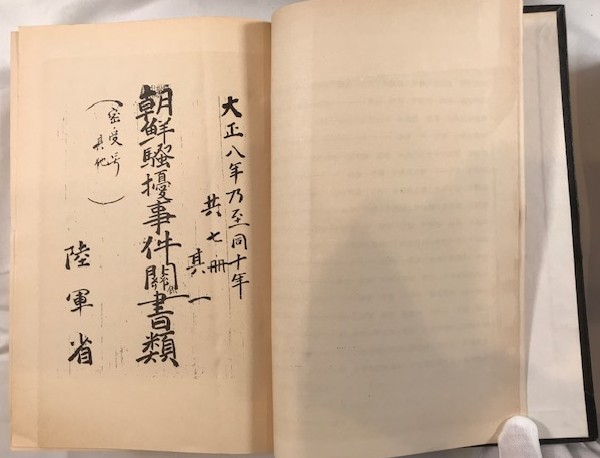 大正八年乃至同十年
共七冊
其一
朝鮮騒擾事件關係書類
(密・受号
其他)
陸軍省